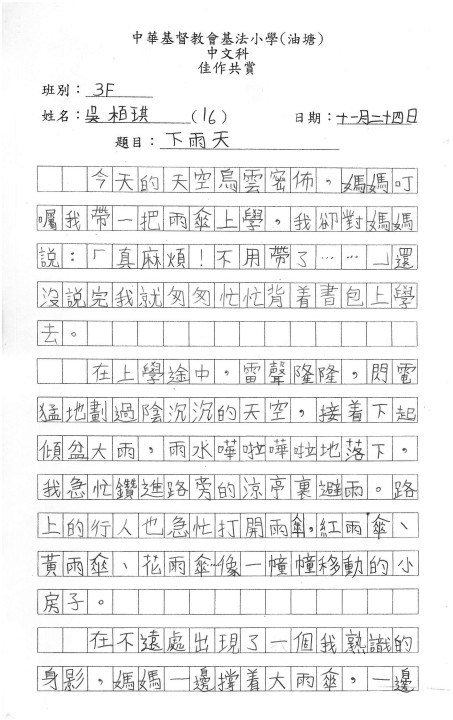 中華基督教會基法小學(油塘)
中文科
佳作共賞
班別：3F
姓名：吳栢琪(16) 日期：十一月二十四日
題目：下雨天
今天的天空烏雲密佈，媽媽叮
囑我帶一把雨傘上學，我卻對媽媽
說：「真麻煩！不用帶了……」還
沒說完我就匆匆忙忙背着書包上學
去。
在上學途中，雷聲隆隆，閃電
猛地劃過陰沉沉的天空，接着下起
傾盆大雨，雨水嘩啦嘩啦地落下，
我急忙鑽進路旁的涼亭裏避雨。路
上的行人也急忙打開雨傘。紅雨傘、
黃雨傘、花雨傘像一幢幢移動的小
房子。
在不遠處出現了一個我熟識的
身影，媽媽一邊撐着大雨傘，一邊